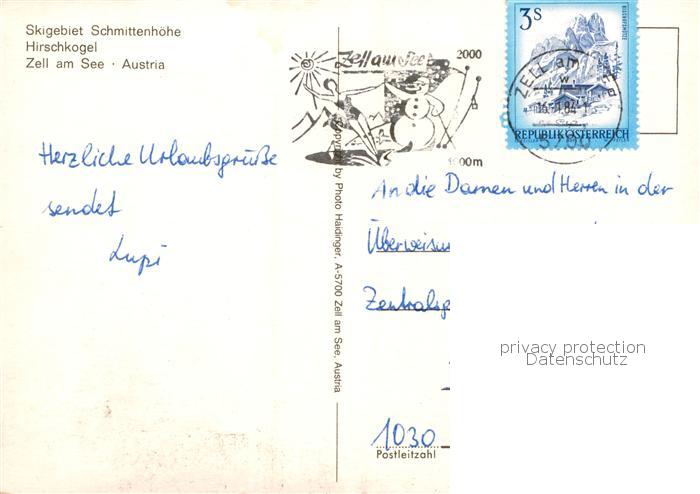 Skigebiet Schmittenhöhe
Hirschkogel
Zell am See · Austria
Herzliche Urlaubsgrüße
sendet
Lupi
Copyright by Photo Haidinger, A-5700 Zell am See, Austria
Zell am See
2000
1000m
3S
ZELL am
16. 1.84
5700
REPUBLIK ÖSTERREICH
An die Damen und Herren in der
Überweisun
Zentralsp
privacy protection
Datenschutz
1030
Postleitzahl